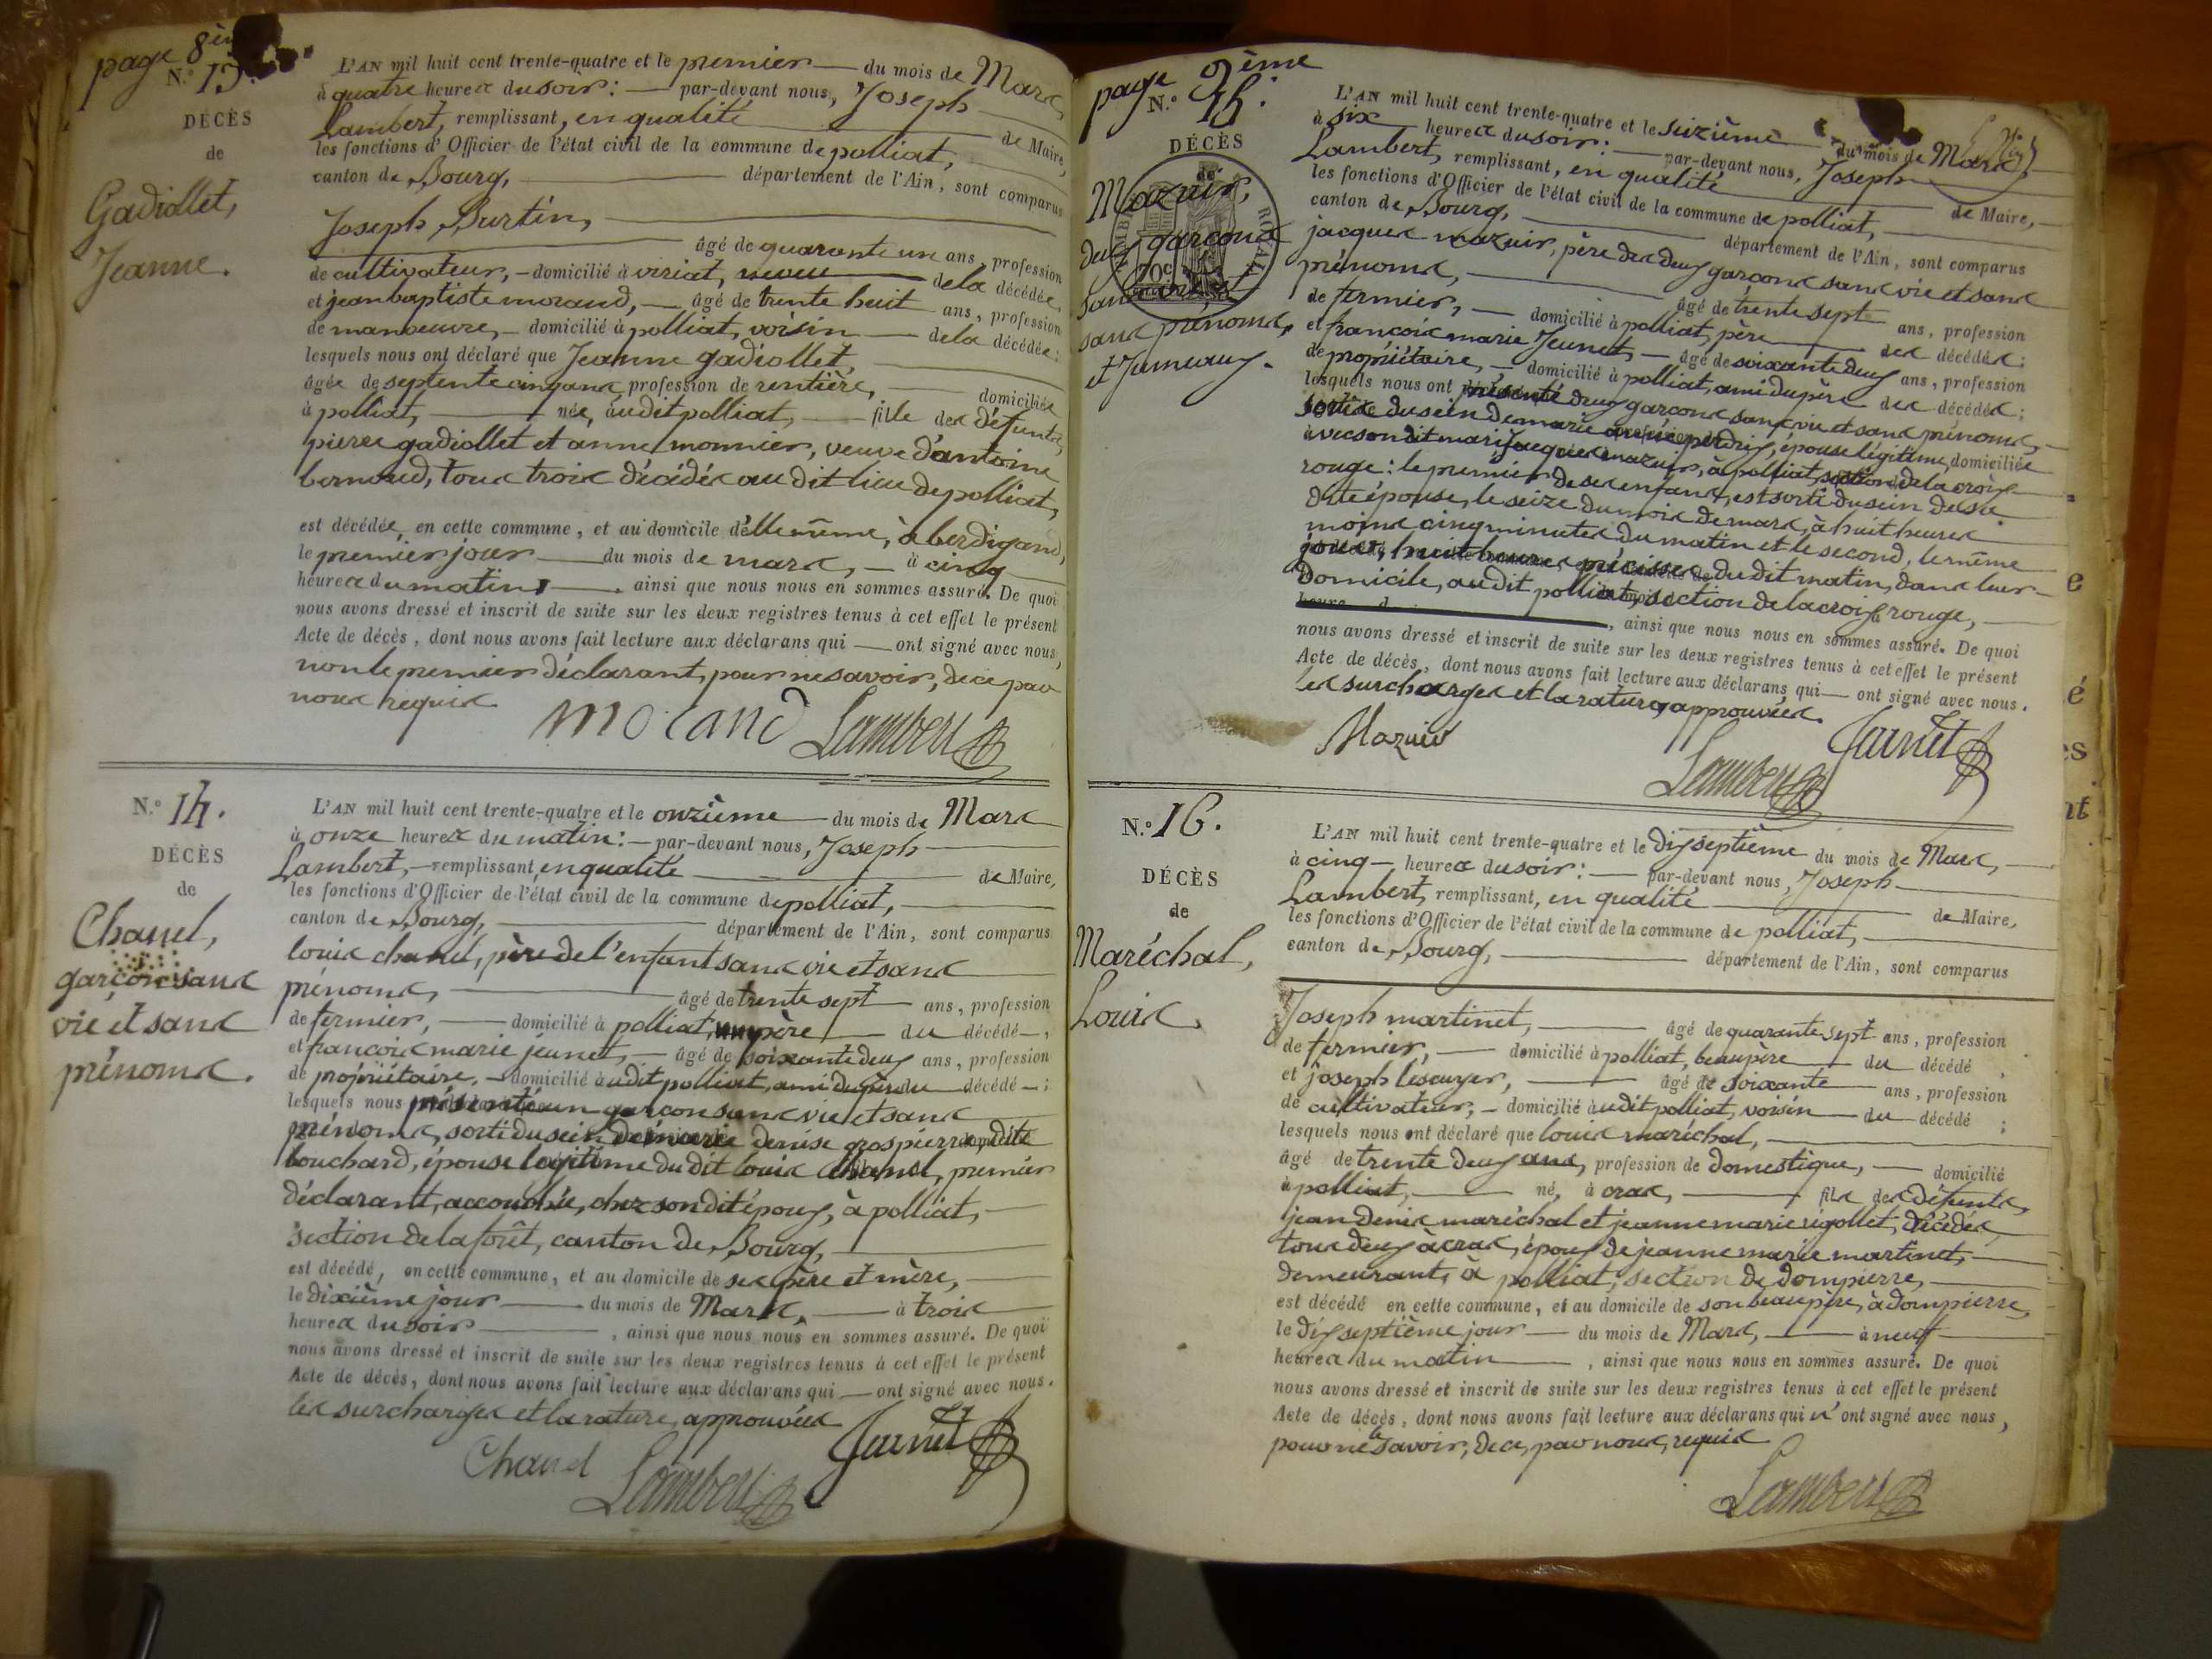 page 8ème
N.° 13.
DÉCÈS
de
Gadiollet,
Jeanne.
L'AN mil huit cent trente-quatre et le premier du mois de Mars
à quatre heures du soir : par-devant nous, Joseph
Lambert, remplissant, en qualité de Maire,
les fonctions d'Officier de l'état civil de la commune de polliat,
canton de Bourg, département de l'Ain, sont comparus
Joseph Burtin,
âgé de quarante un ans, profession
de cultivateur, domicilié à viriat, neveu de la décédée,
et jean baptiste morand, âgé de trente huit ans, profession
de manoeuvre, domicilié à polliat, voisin de la décédée :
lesquels nous ont déclaré que Jeanne gadiollet,
âgée de septente cinq ans, profession de rentière, domiciliée
à polliat, née, audit polliat, fille des défunts,
pierre gadiollet et anne monnier, veuve d'antoine
bernoud, tous trois décédés au dit lieu de polliat,
est décédée, en cette commune, et au domicile d'elle même, à berdigand,
le premier jour du mois de mars, à cinq
heures du matin, ainsi que nous nous en sommes assuré. De quoi
nous avons dressé et inscrit de suite sur les deux registres tenus à cet effet le présent
Acte de décès, dont nous avons fait lecture aux déclarans qui ont signé avec nous,
non le premier déclarant, pour ne savoir, de ce par
nous requis
morand Lambert
N.° 14.
DÉCÈS
de
Chanel,
garçon sans
vie et sans
prénoms.
L'AN mil huit cent trente-quatre et le onzième du mois de Mars
à onze heures du matin : par-devant nous, Joseph
Lambert, remplissant, en qualité de Maire,
les fonctions d'Officier de l'état civil de la commune de polliat,
canton de Bourg, département de l'Ain, sont comparus
louis chanel, père de l'enfant sans vie et sans
prénoms, âgé de trente sept ans, profession
de fermier, domicilié à polliat, père du décédé,
et francois marie jeunet, âgé de soixante deux ans, profession
de propriétaire, domicilié audit polliat, ami du père du décédé :
lesquels nous présenté un garcon sans vie et sans
prénoms, sorti du sein de marie denise grospierre, dite
bouchard, épouse legitime du dit louis chanel, premier
déclarant, accouchée, chez son dit époux, à polliat,
section de la forêt, canton de Bourg,
est décédé, en cette commune, et au domicile de ses père et mère,
le dixième jour du mois de Mars, à trois
heures du soir, ainsi que nous nous en sommes assuré. De quoi
nous avons dressé et inscrit de suite sur les deux registres tenus à cet effet le présent
Acte de décès, dont nous avons fait lecture aux déclarans qui ont signé avec nous.
les surcharges et la rature, approuvées
Chanel Lambert Jeunet
page 9ème
N.° 15.
DÉCÈS
de
Mazuir,
deux garcons
sans vie et
sans prénoms,
et Jumeaux.
L'AN mil huit cent trente-quatre et le seizième du mois de Mars
à six heures du soir : par-devant nous, Joseph
Lambert, remplissant, en qualité de Maire,
les fonctions d'Officier de l'état civil de la commune de polliat,
canton de Bourg, département de l'Ain, sont comparus
jacques mazuir, père des deux garçons sans vie et sans
prénoms, âgé de trente sept ans, profession
de fermier, domicilié à polliat, père des décédés ;
et francois marie Jeunet, âgé de soixante deux ans, profession
de propriétaire, domicilié à polliat, ami du père des décédés ;
lesquels nous ont présenté deux garçons sans vie et sans prénoms,
sortis du sein de marie perdrix, épouse légitime, domiciliée
avec son dit mari jacques mazuir, à polliat, section de la croix
rouge : le premier de ses enfants, est sorti du sein de sa
dite épouse, le seize du mois de mars, à huit heures
moins cinq minutes du matin et le second, le même
jour, huit heures précises du dit matin, dans leur
Domicile, au dit polliat, section de la croix rouge,
, ainsi que nous nous en sommes assuré. De quoi
nous avons dressé et inscrit de suite sur les deux registres tenus à cet effet le présent
Acte de décès, dont nous avons fait lecture aux déclarans qui ont signé avec nous.
les surcharges et la rature, approuvées.
Mazuir Lambert Jeunet
N.° 16.
DÉCÈS
de
Maréchal,
Louis.
L'AN mil huit cent trente-quatre et le dix septième du mois de Mars,
à cinq heures du soir : par-devant nous, Joseph
Lambert, remplissant, en qualité de Maire,
les fonctions d'Officier de l'état civil de la commune de polliat,
canton de Bourg, département de l'Ain, sont comparus
Joseph martinet, âgé de quarante sept ans, profession
de fermier, domicilié à polliat, beaupère du décédé ;
et joseph léscuyer, âgé de soixante ans, profession
de cultivateur, domicilié audit polliat, voisin du décédé ;
lesquels nous ont déclaré que louis maréchal,
âgé de trente deux ans, profession de domestique, domicilié
à polliat, né, à cras, fils des défunts,
jean denis maréchal et jeanne marie rigollet, décédés,
tous deux à cras, époux de jeanne marie martinet,
demeurant, à polliat, section de dompierre,
est décédé en cette commune, et au domicile de son beaupère, à dompierre,
le dix septième jour du mois de Mars, à neuf
heures du matin, ainsi que nous nous en sommes assuré. De quoi
nous avons dressé et inscrit de suite sur les deux registres tenus à cet effet le présent
Acte de décès, dont nous avons fait lecture aux déclarans qui n'ont signé avec nous,
pour ne le savoir, de ce, par nous, requis
Lambert